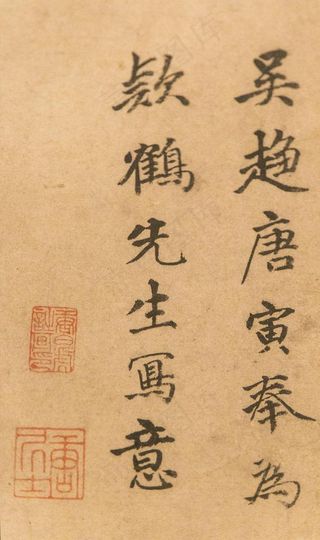 吴趋唐寅奉為
款鶴先生寫意